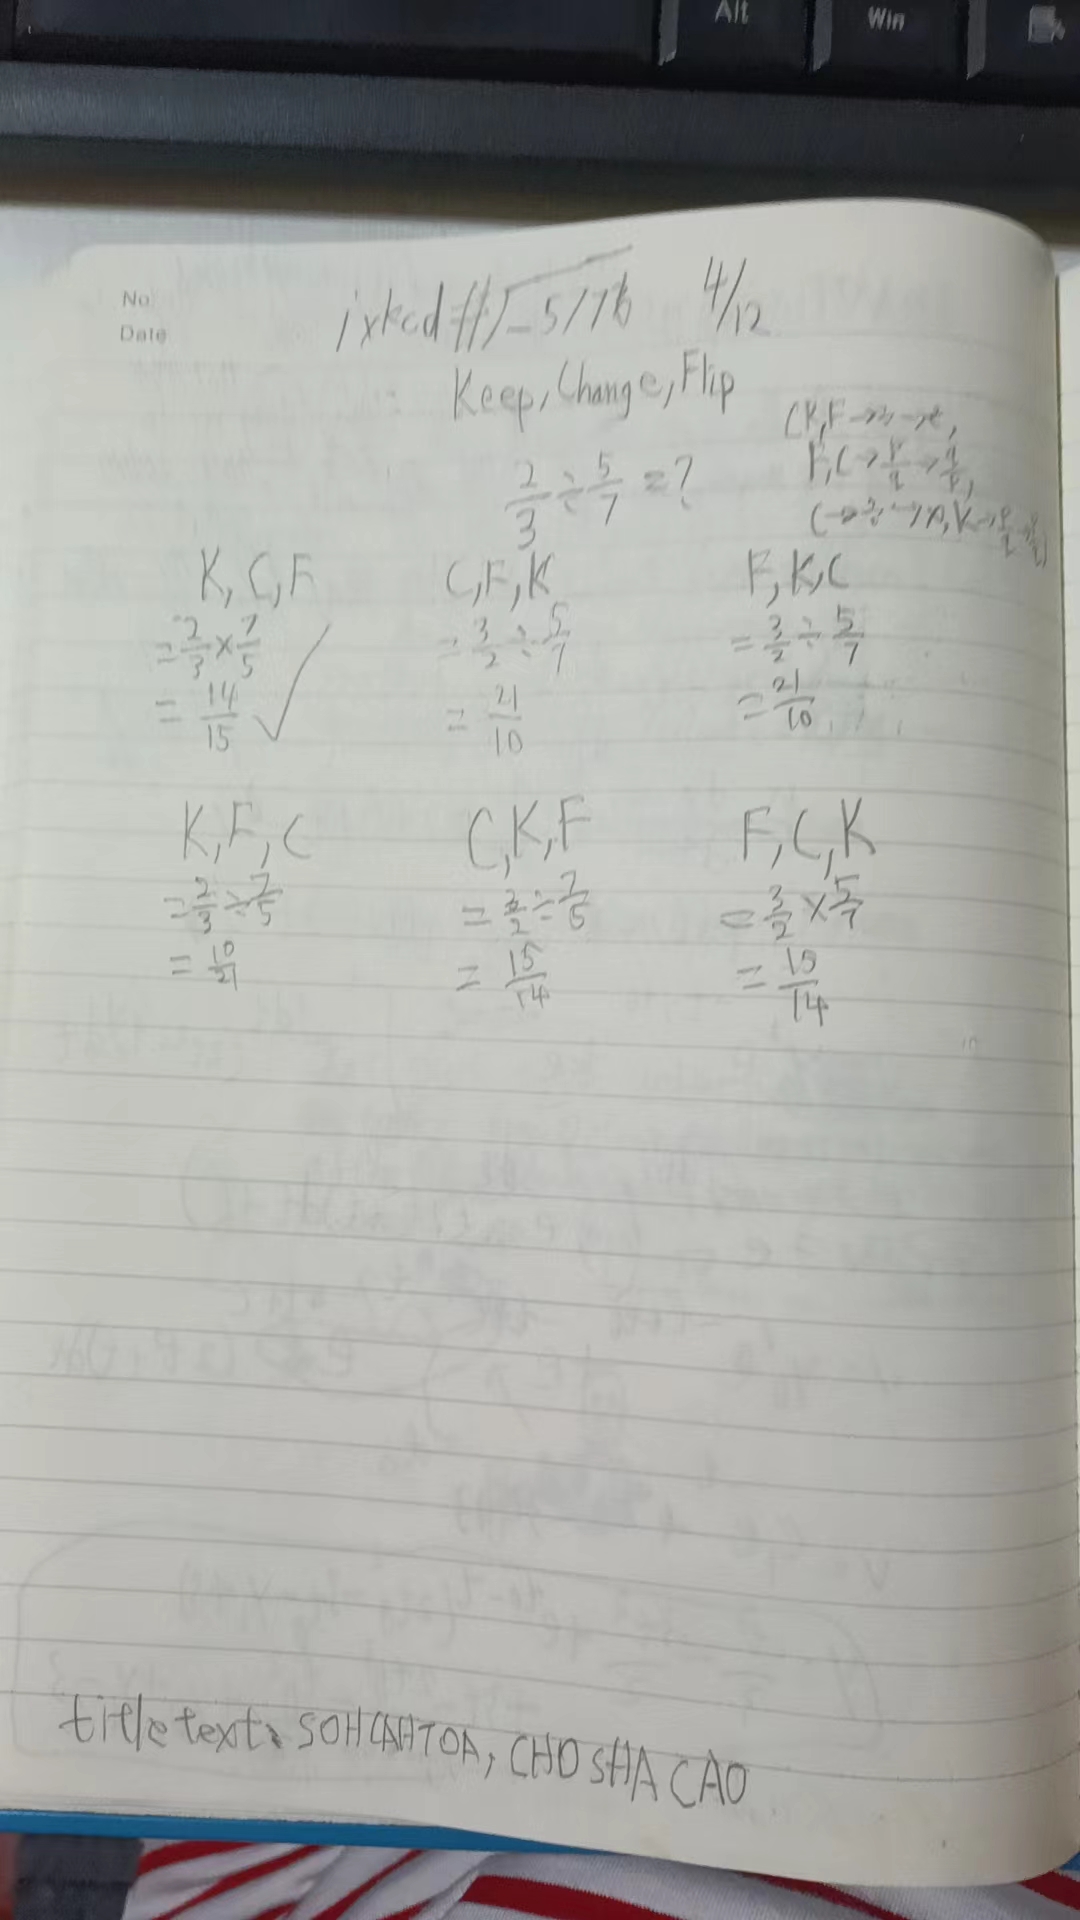 Alt Win
No.
Date
ixkcd #√-5176 4/12
Keep, Change, Flip
2/3 ÷ 5/7 = ?
F, C → p/q → q/p,
K, C, F
= 2/3 × 7/5
= 14/15 ✓
C, F, K
= 3/2 ÷ 5/7
= 21/10
F, K, C
= 3/2 ÷ 5/7
= 21/10
K, F, C
= 2/3 ÷ 7/5
= 10/21
C, K, F
= 3/2 ÷ 7/5
= 15/14
F, C, K
= 3/2 × 5/7
= 15/14
title text: SOHCAHTOA, CHO SHA CAO